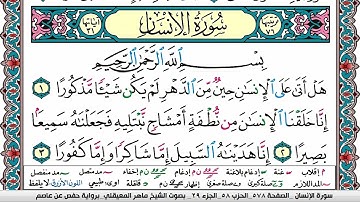 سُورَةُ الْإِنْسَانِ
بِسْمِ اللَّهِ الرَّحْمَٰنِ الرَّحِيمِ
هَلْ أَتَىٰ عَلَى الْإِنْسَٰنِ حِينٌ مِّنَ الدَّهْرِ لَمْ يَكُن شَيْـًٔا مَّذْكُورًا ١
إِنَّا خَلَقْنَا الْإِنْسَٰنَ مِن نُّطْفَةٍ أَمْشَاجٍ نَّبْتَلِيهِ فَجَعَلْنَٰهُ سَمِيعًۢا
بَصِيرًا ٢ إِنَّا هَدَيْنَٰهُ السَّبِيلَ إِمَّا شَاكِرًا وَإِمَّا كَفُورًا ٣
سورة الإنسان الصفحة ٥٧٨ الحزب ٥٨ الجزء ٢٩ بصوت الشيخ ماهر المعيقلي برواية حفص عن عاصم